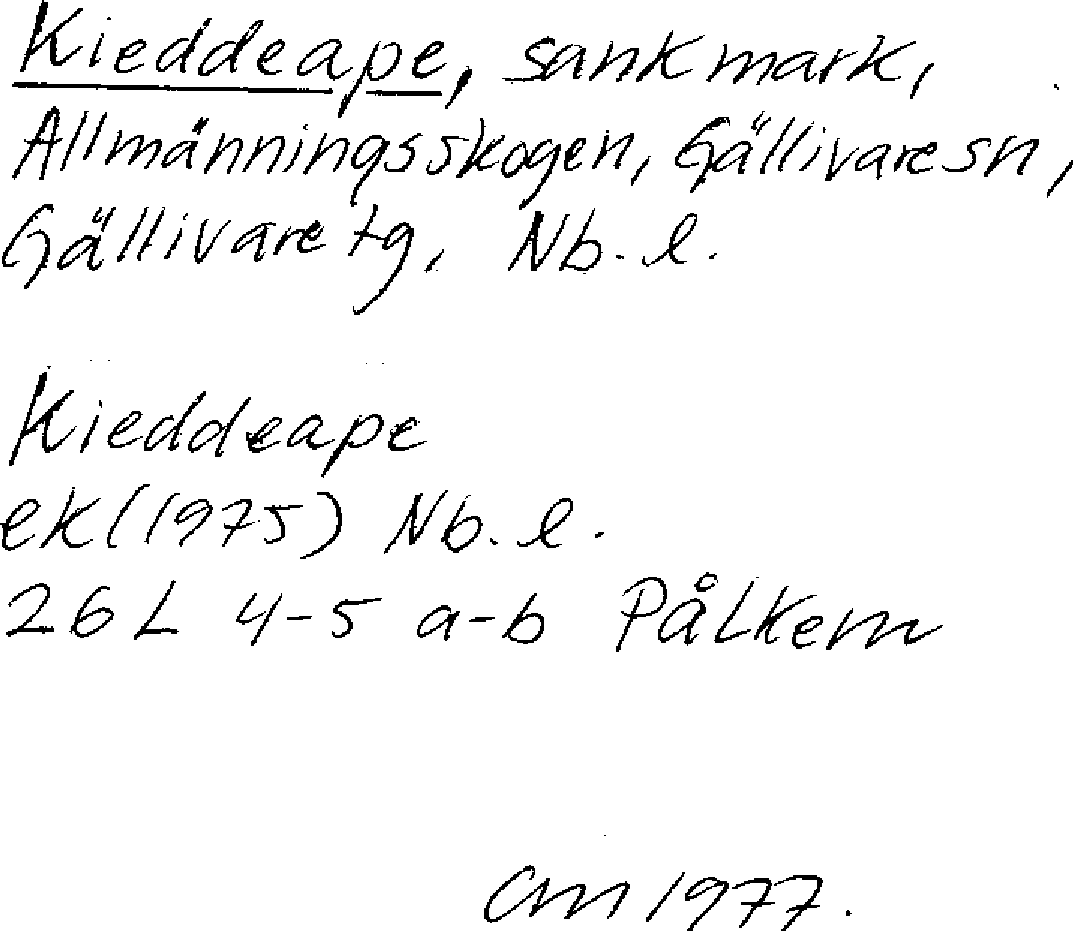 Kieddeape, sankmark,
Allmänningsskogen, Gällivare sn,
Gällivare tg, Nb. l.
Kieddeape
ek (1975) Nb. l.
26 L 4-5 a-b Pålkem
CM 1977.